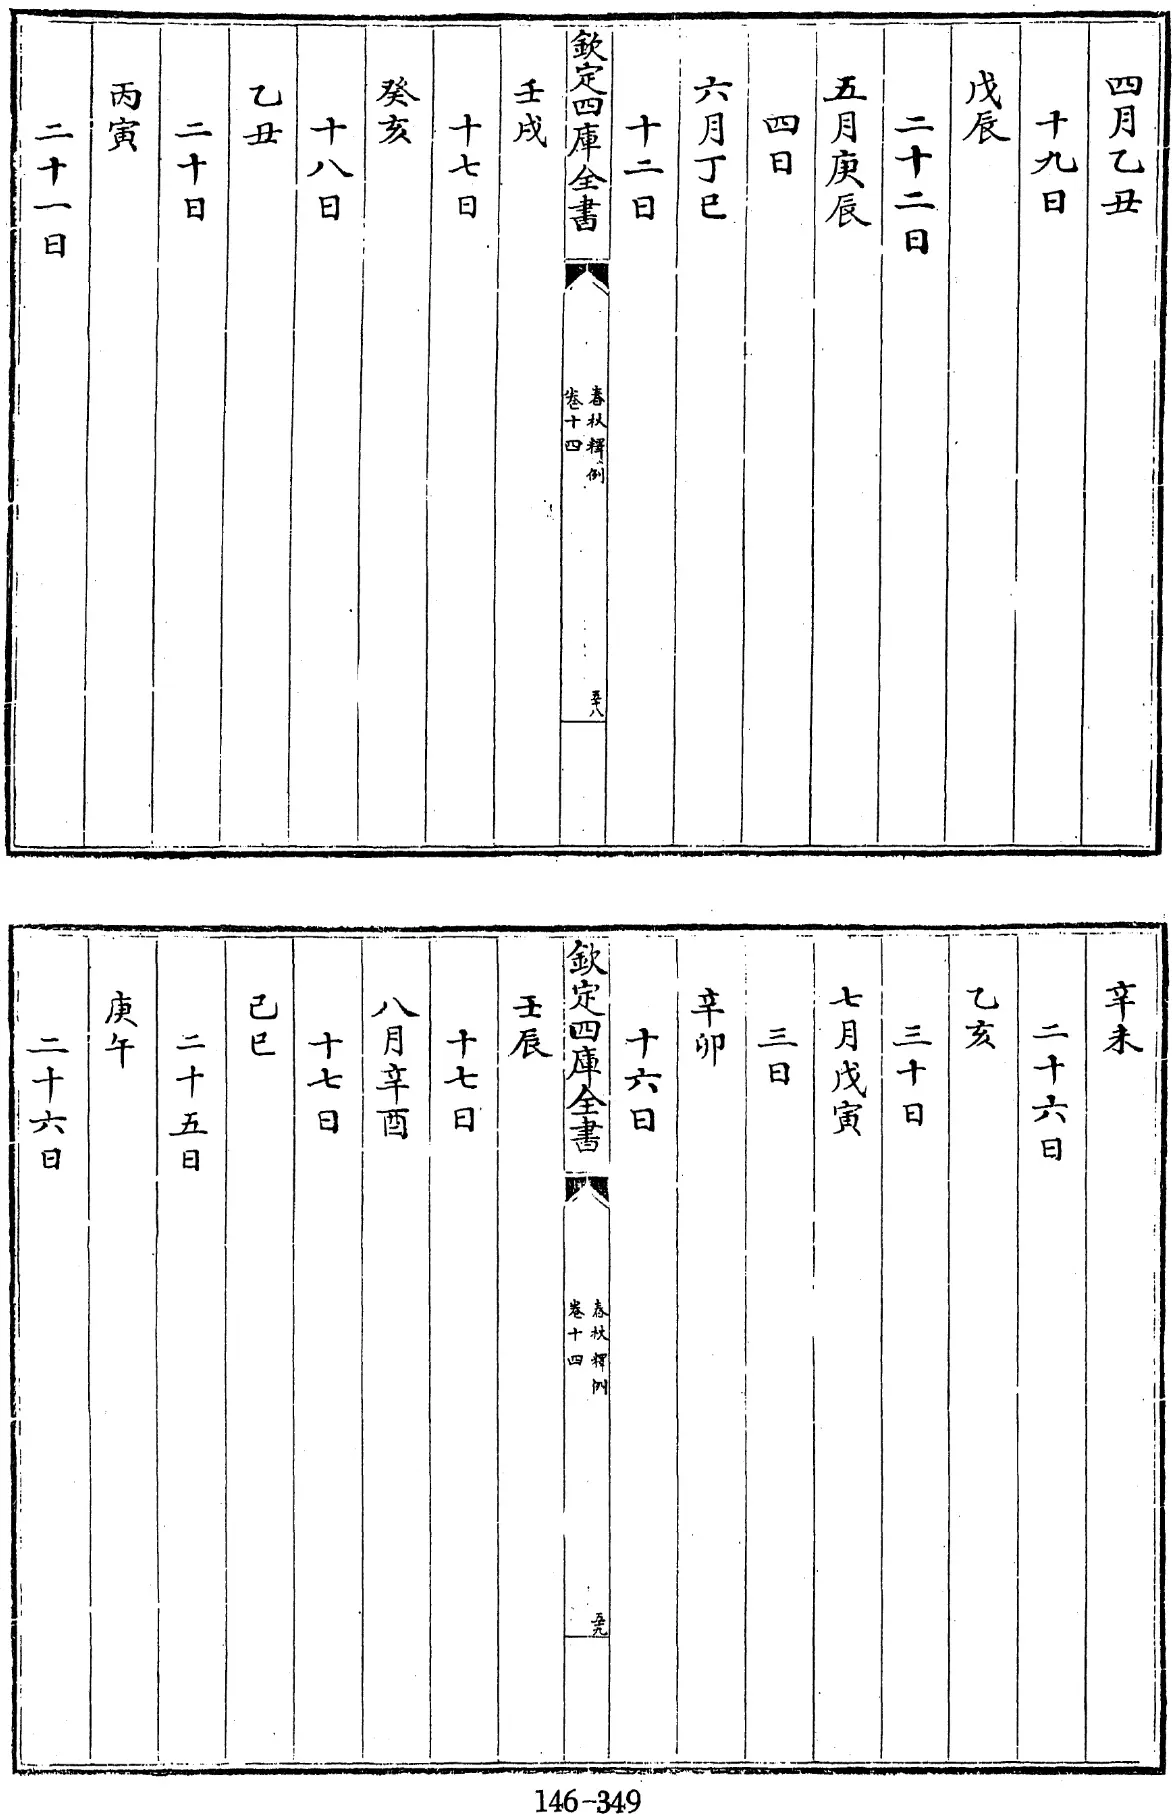 四月乙丑
十九日
戊辰
二十二日
五月庚辰
四日
六月丁巳
十二日
欽定四庫全書
春秋釋例
卷十四
五十八
壬戌
十七日
癸亥
十八日
乙丑
二十日
丙寅
二十一日
辛未
二十六日
乙亥
三十日
七月戊寅
三日
辛卯
十六日
欽定四庫全書
春秋釋例
卷十四
五十九
壬辰
十七日
八月辛酉
十七日
己巳
二十五日
庚午
二十六日
146-349